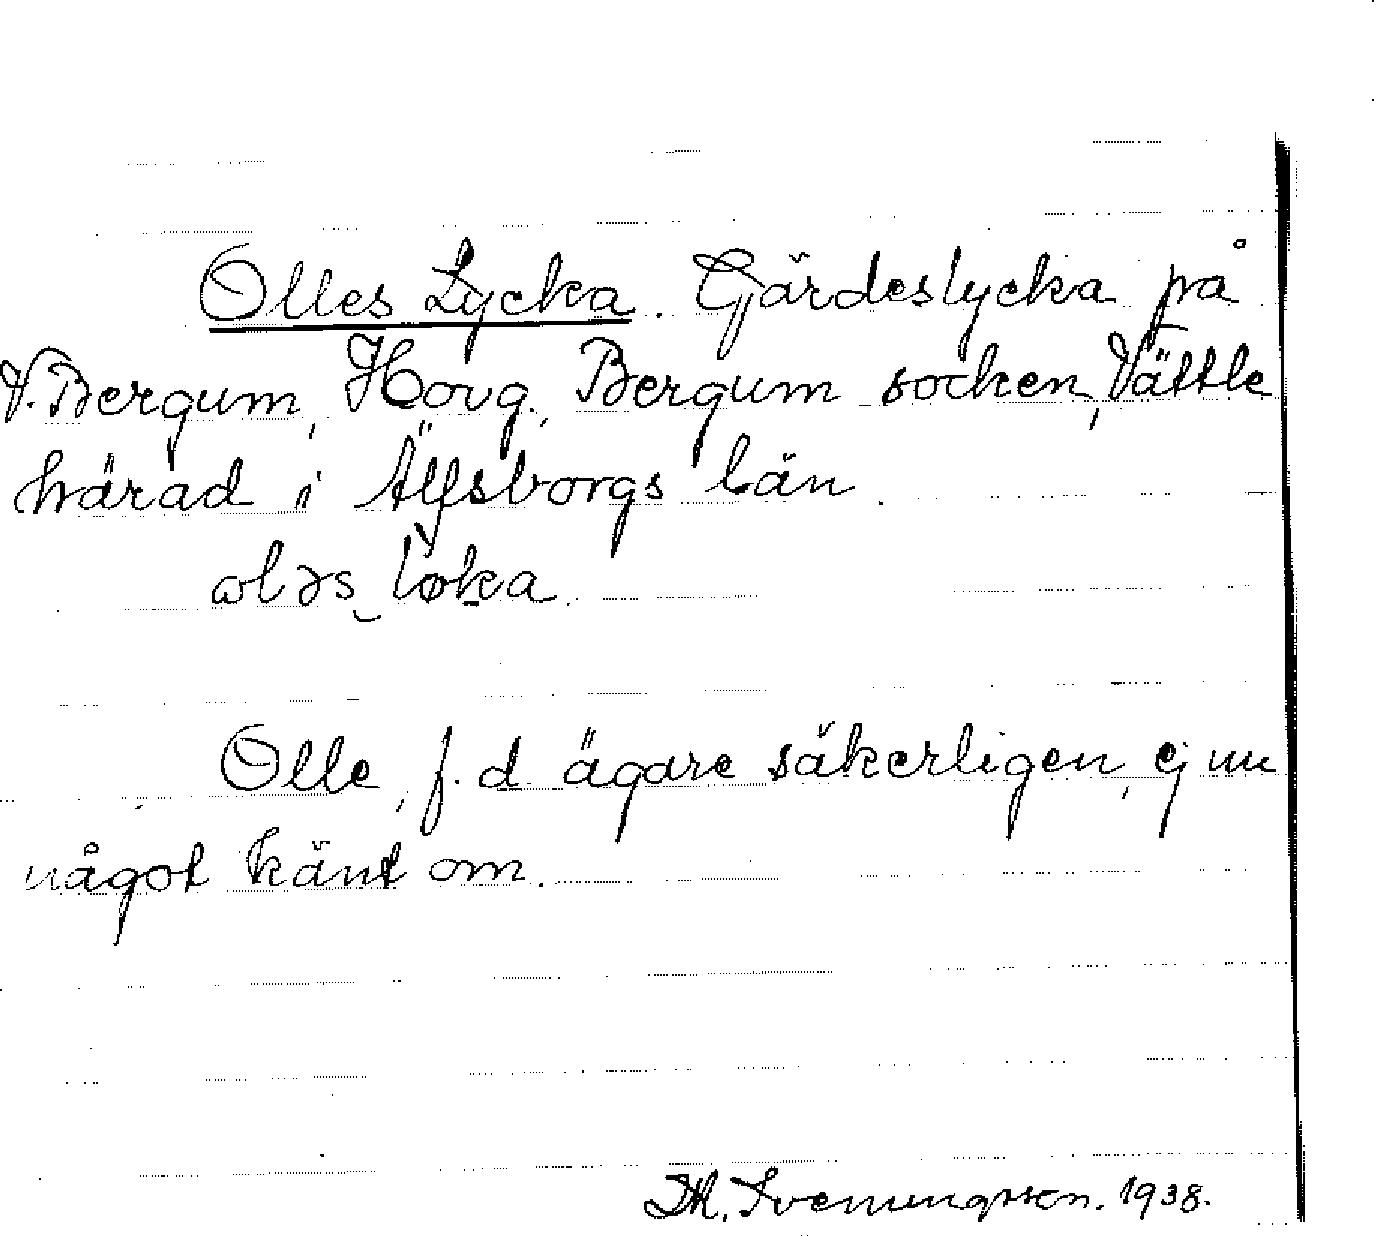 Olles Lycka. Gärdeslycka på
V. Bergum, Hovg., Bergum socken, Vättle
härad i Älfsborgs län.
ɷləs løka
Olle, f. d ägare säkerligen, ej nu
något känt om.
Th. Svenungsson. 1938.